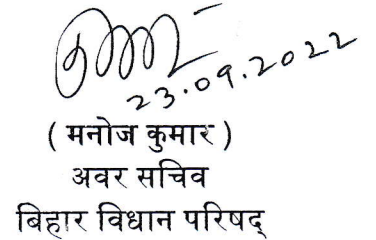 23.09.2022
( मनोज कुमार )
अवर सचिव
बिहार विधान परिषद्